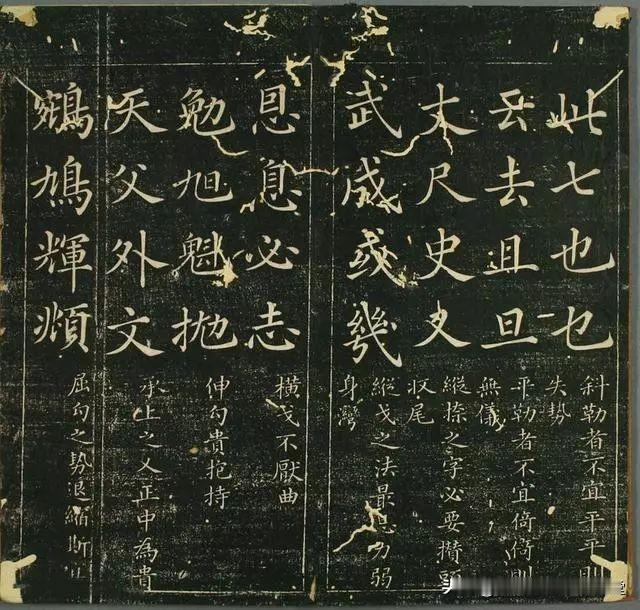 此七也乜
斜勒者不宜平平則
失势
云去且旦
平勒者不宜倚倚則
無儀
丈尺史又
縱捺之字必要攢頭
收尾
武成或幾
縱戈之法最忌力弱
身彎
息必志
橫戈不厭曲
勉旭魁抛
伸勾貴抱持
天父外文
承上之乂正中為貴
鵷鳩輝頫
屈勾之势退縮斯宜